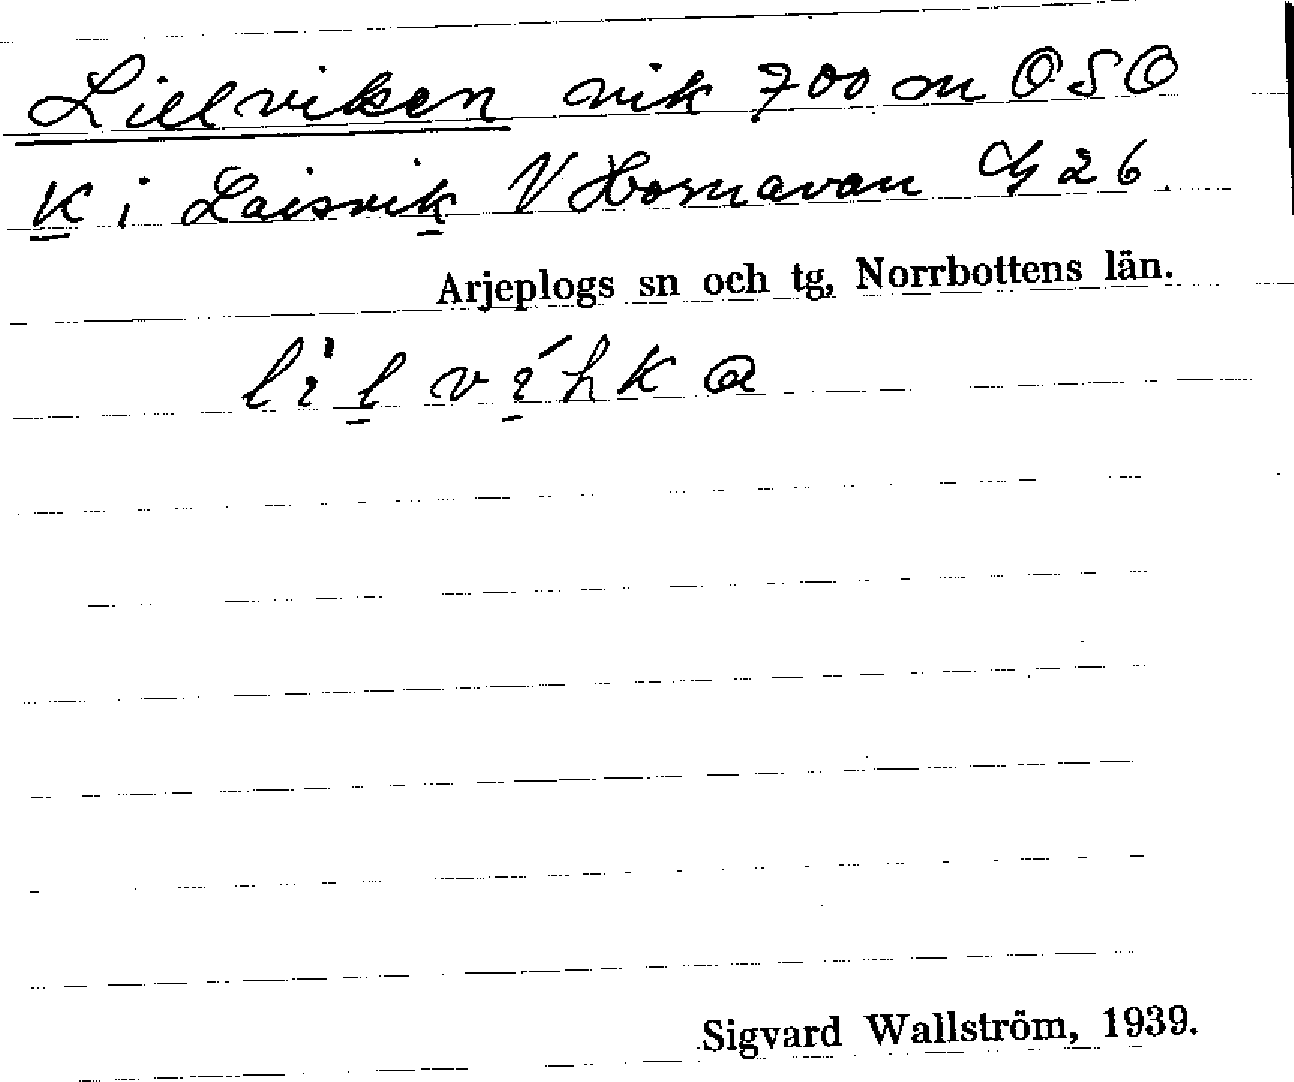 Lillviken vik 700 m OSO
K i Laisvik V Hornavan G 26
Arjeplogs sn och tg, Norrbottens län.
lìl víhka
Sigvard Wallström, 1939.